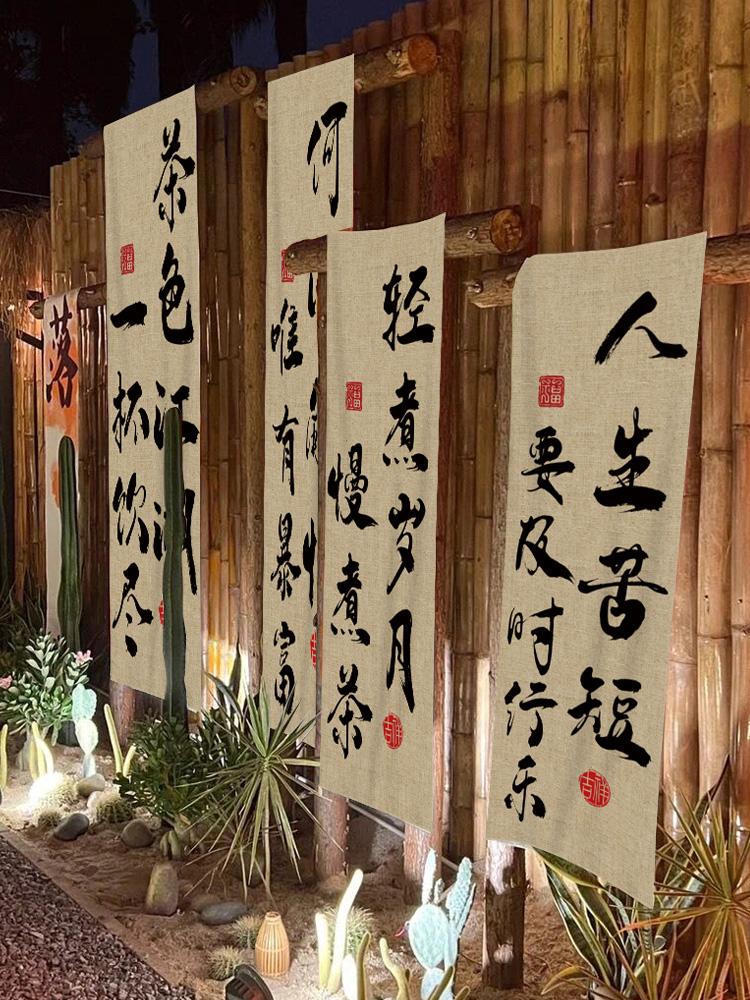 人生苦短
要及时行乐
福
吉祥
轻煮岁月
慢煮茶
福
吉祥
何
唯有暴富
茶色江湖
一杯饮尽
福
落